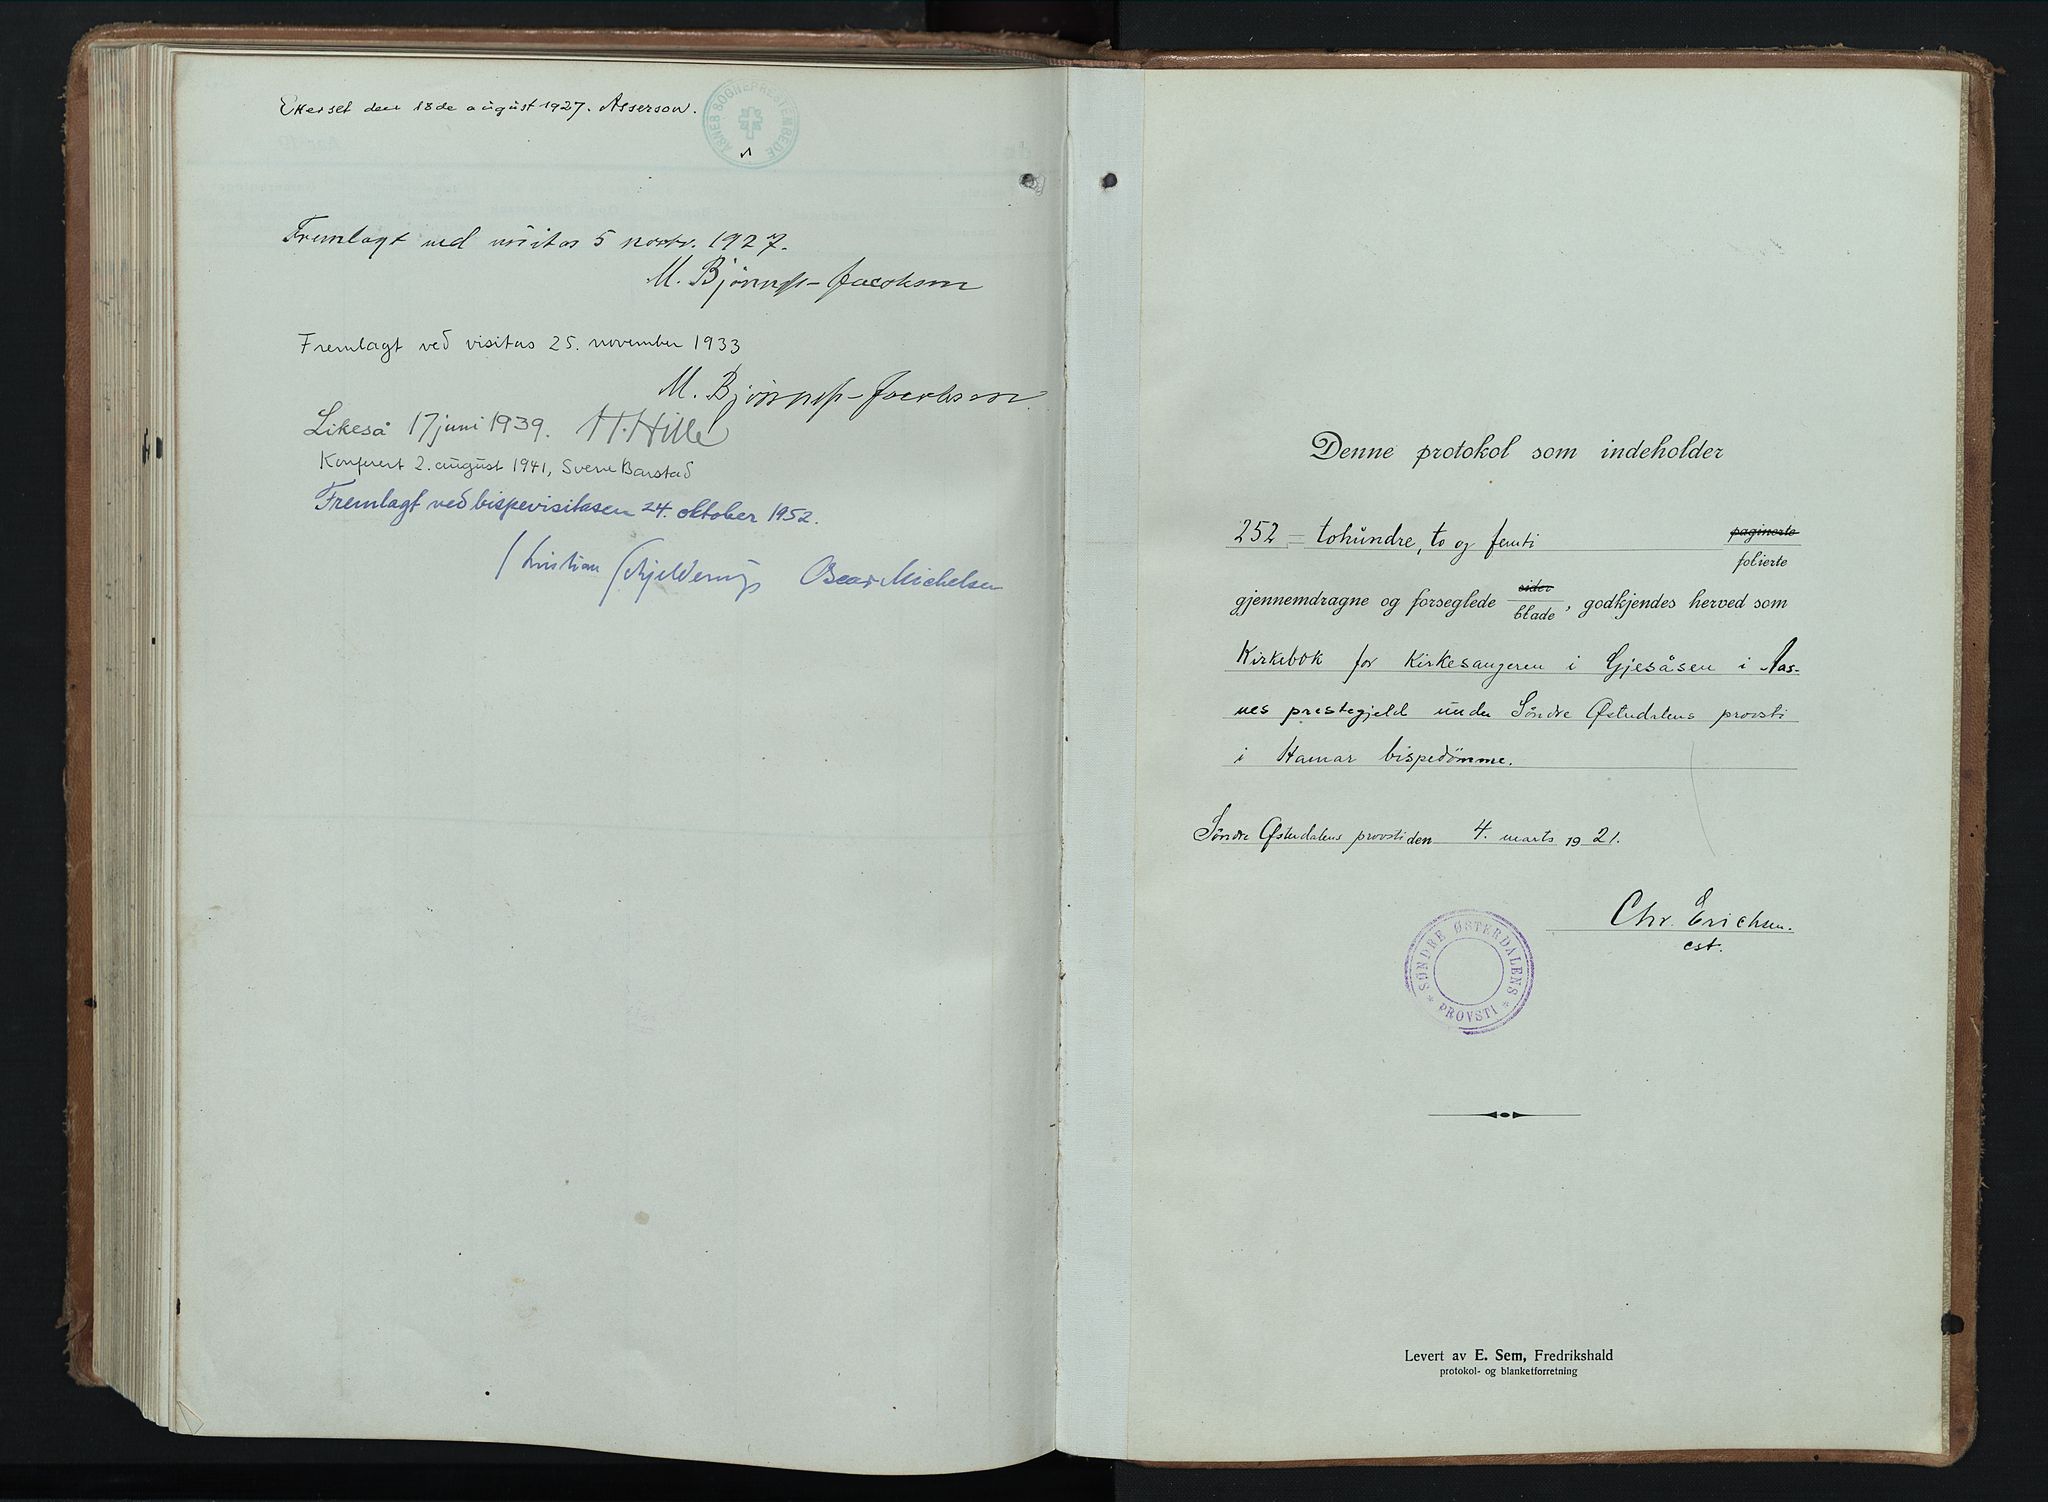 Etterset den 18de august 1927. Asserson.
ÅSNES SOGNEPRESTEMBEDE
Fremlagt ved visitas 5 novbr. 1927.
M. Bjønnes-Jacobsen
Fremlagt ved visitas 25. november 1933
M. Bjønnes-Jacobsen
Likeså 17 juni 1939. H. Hille
Konferert 2. august 1941, Sverre Barstad
Fremlagt ved bispevisitasen 24. oktober 1952.
Kristian Schjelderup Oscar Michelsen
Denne protokol som indeholder
252 = tohundre, to og femti paginerte
folierte
gjennemdragne og forseglede sider
blade, godkjendes herved som
Kirkebok for Kirkesangeren i Gjesåsen i Aas-
nes prestegjeld under Söndre Østerdalens provsti
i Hamar bispedömme.
Söndre Østerdalens provsti den 4. marts 1921.
Chr. Erichsen.
cst.
SØNDRE ØSTERDALENS * PROVSTI *
Levert av E. Sem, Fredrikshald
protokol- og blanketforretning